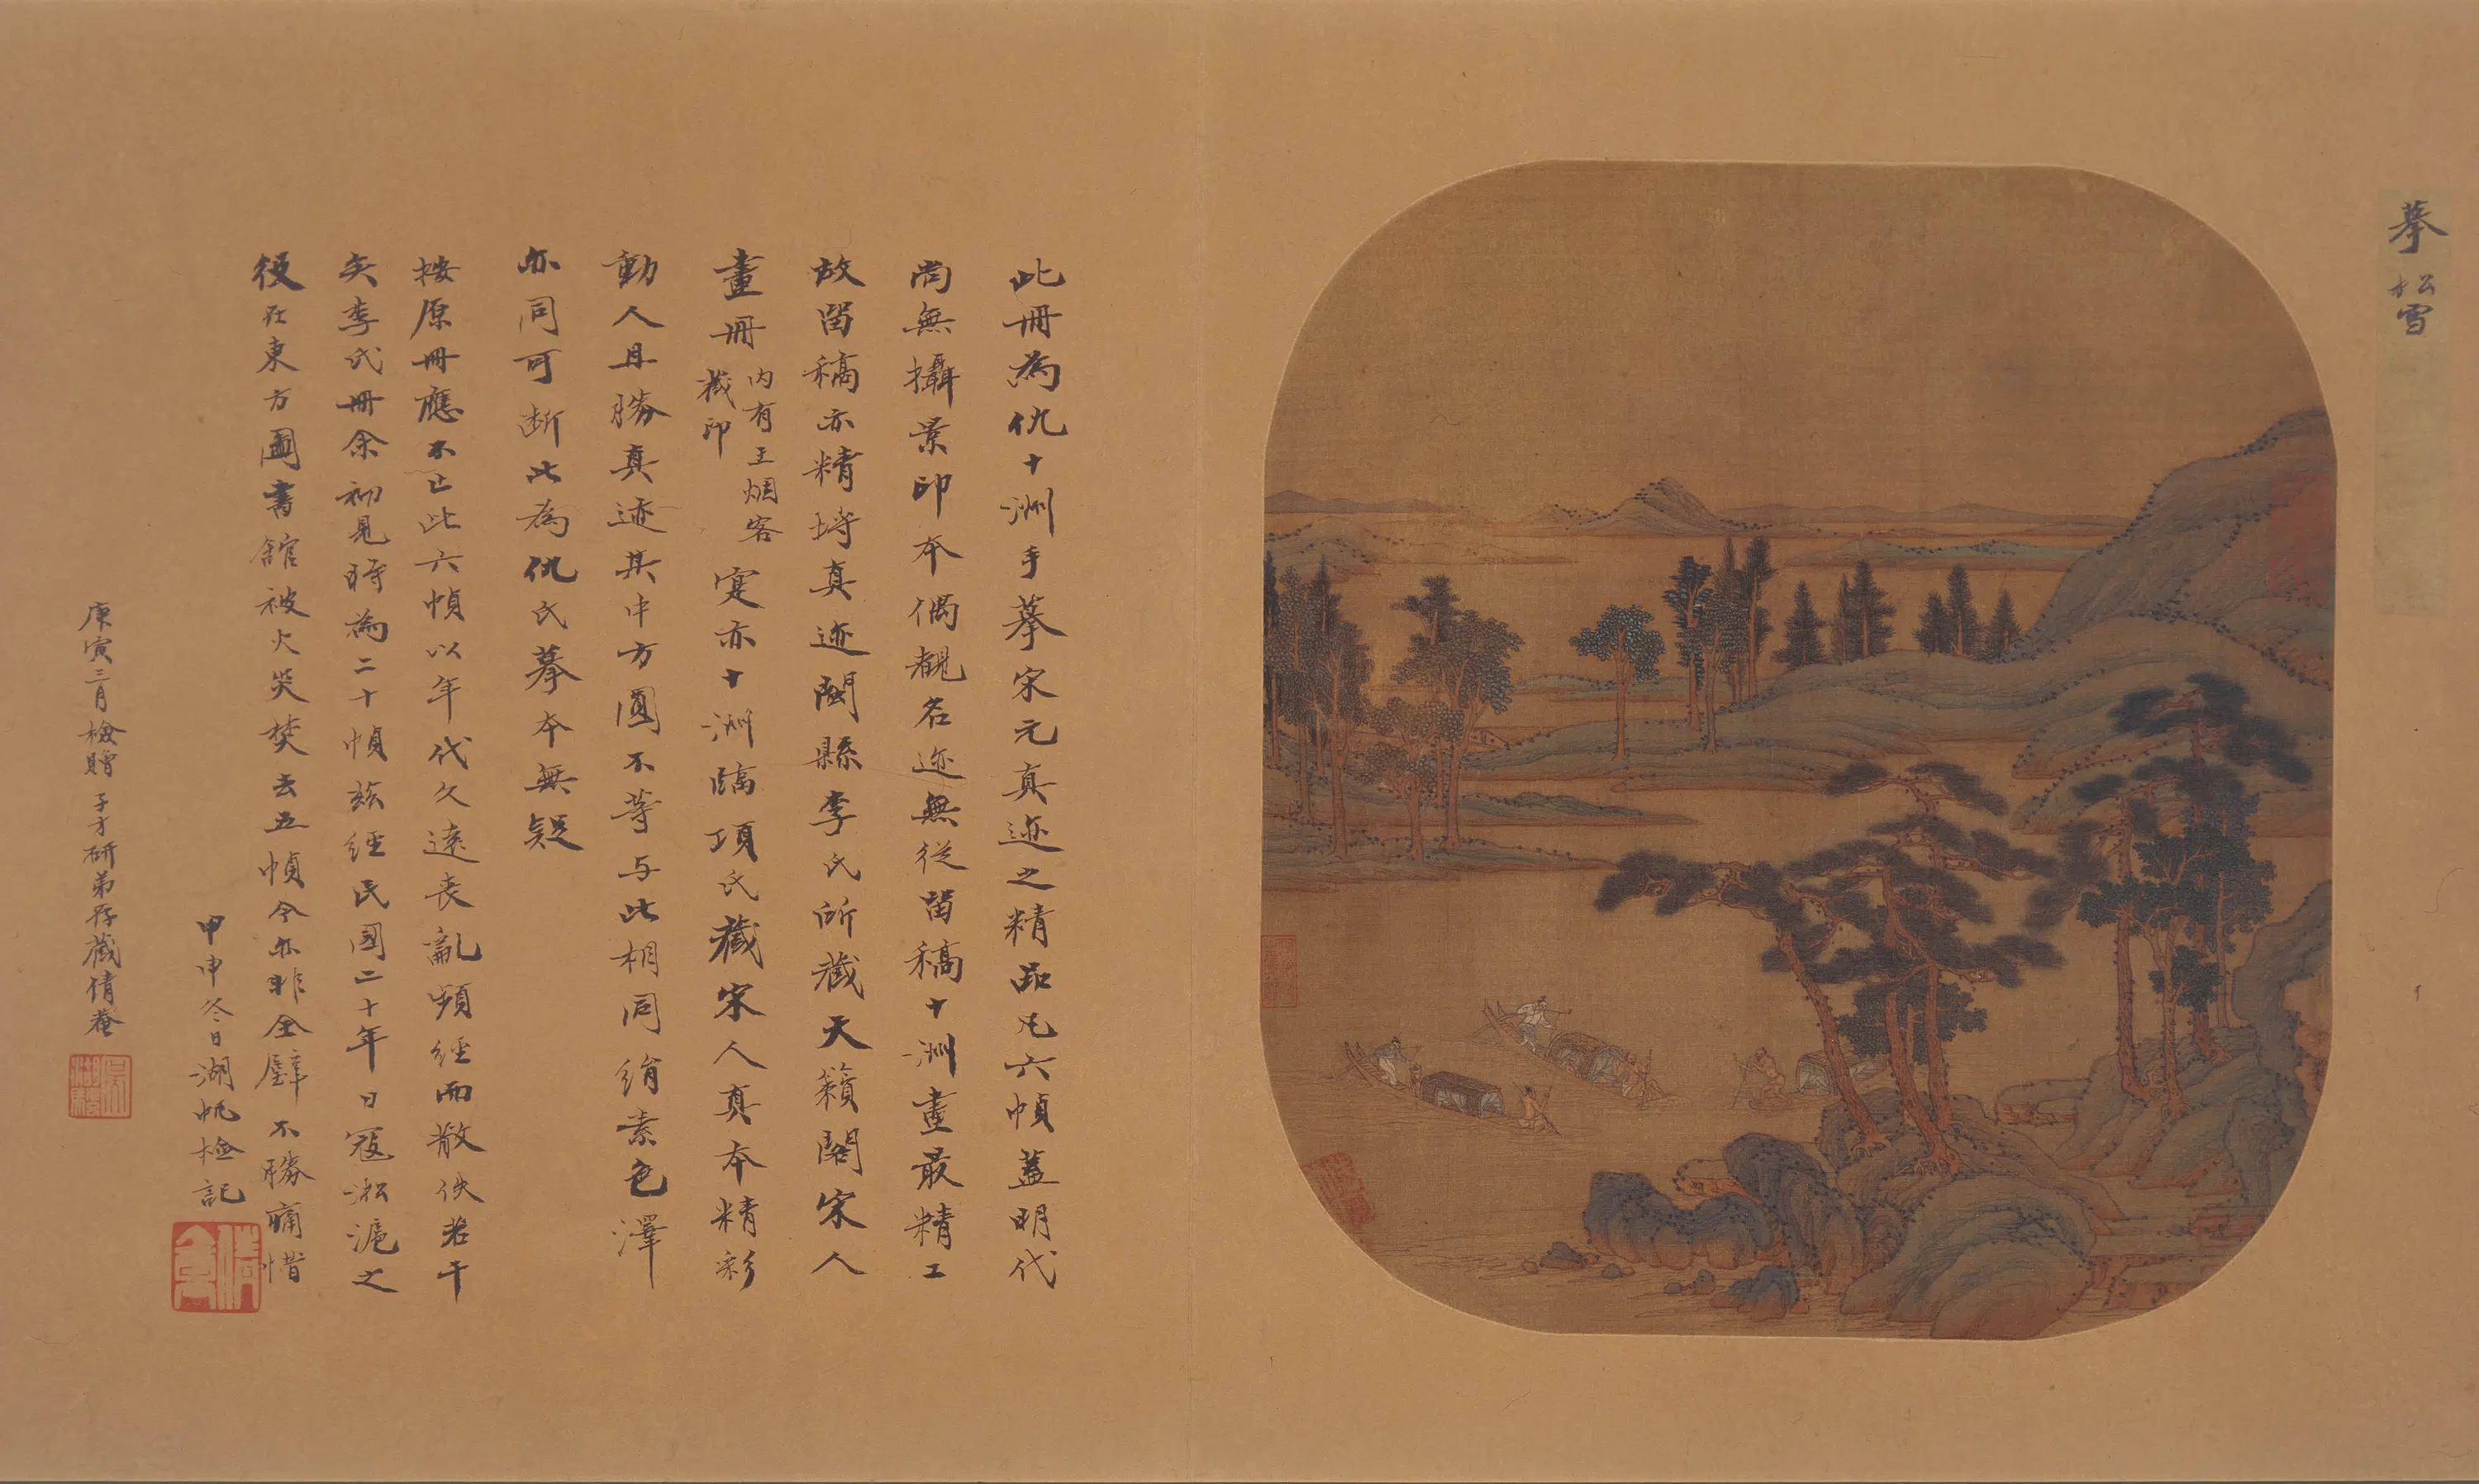 摹松雪
此冊為仇十洲手摹宋元真迹之精品凡六幀蓋明代
尚無攝景印本偶覩名迹無從留稿十洲畫最精工
故留稿亦精埒真迹閩縣李氏所藏天籟閣宋人
畫冊內有王烟客藏印寔亦十洲臨項氏藏宋人真本精彩
動人且勝真迹其中方圓不等与此相同絹素色澤
亦同可斷此為仇氏摹本無疑
按原冊應不止此六幀以年代久遠喪亂頻經而散佚若干
矣李氏冊余初見時為二十幀茲經民國二十年日寇淞滬之
役在東方圖書館被火災焚去五幀今亦非全璧不勝痛惜
甲申冬日湖帆檢記
庚寅三月檢贈子才研弟存藏倩菴